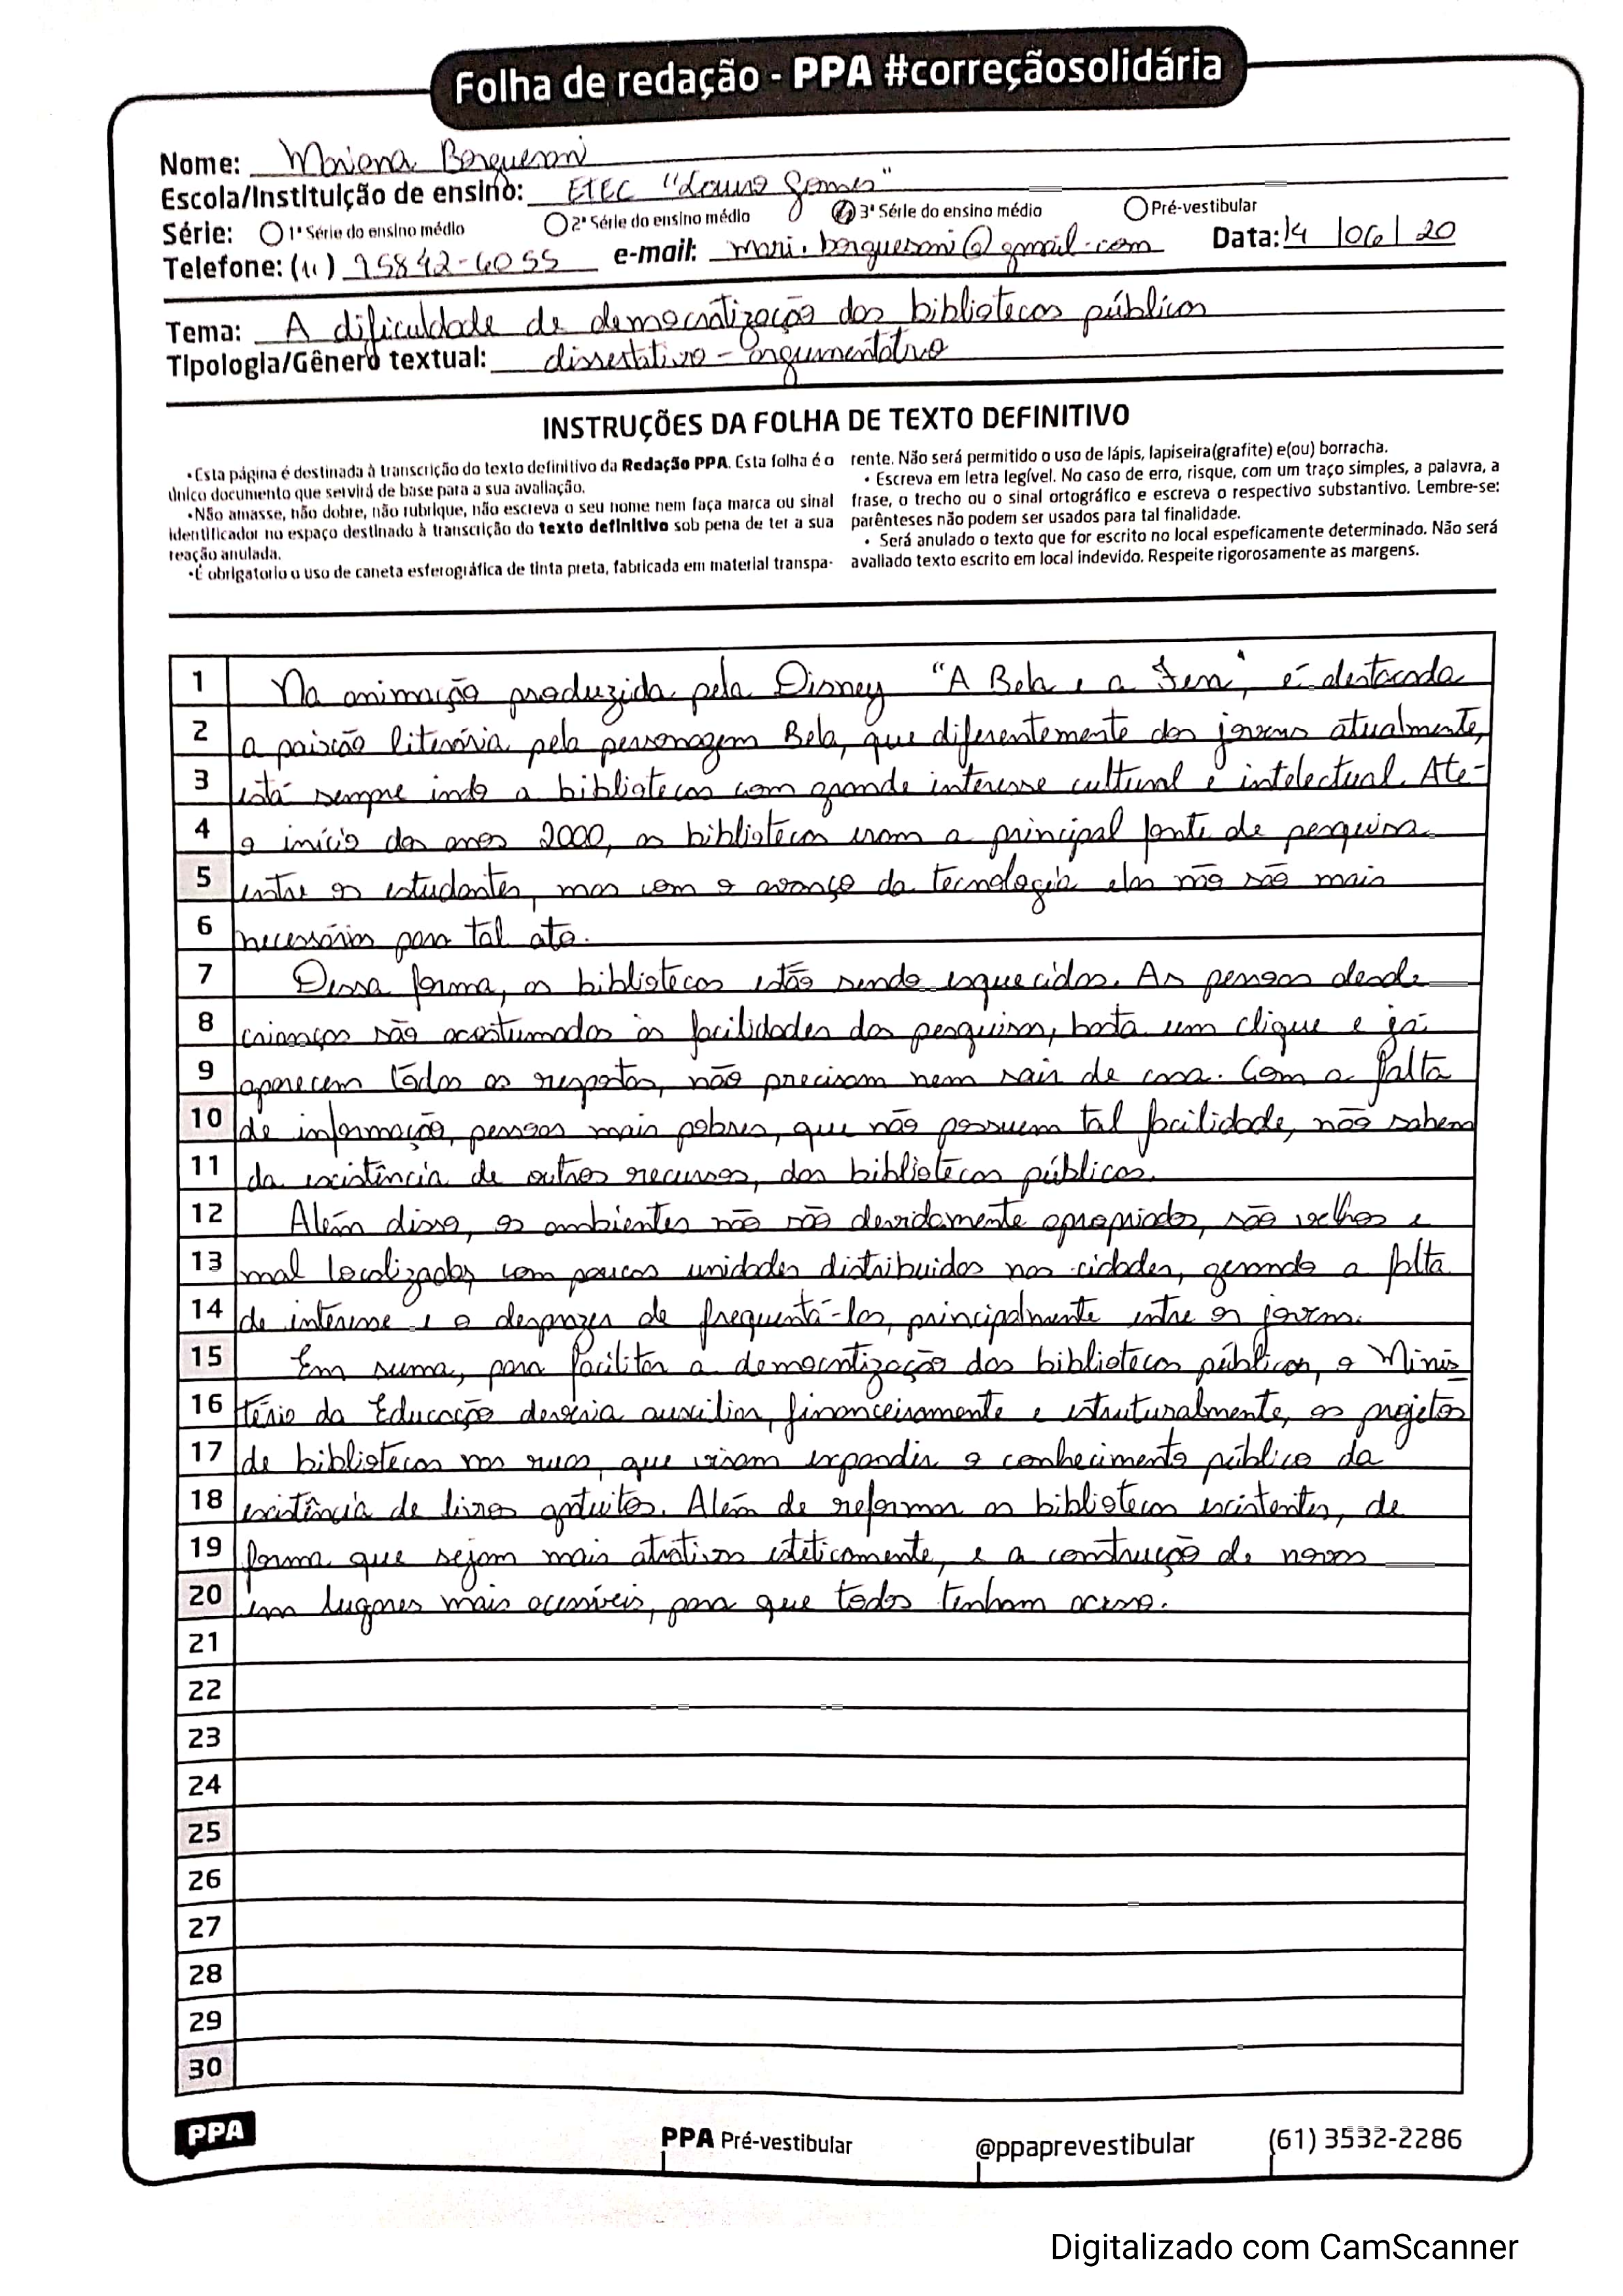 Folha de redação - PPA #correçãosolidária
Nome: Mariana Borgueroni
Escola/Instituição de ensino: ETEC "Lauro Gomes"
Série: 1ª Série do ensino médio 2ª Série do ensino médio 3ª Série do ensino médio Pré-vestibular
Telefone: (11) 95842-6055 e-mail: mari.borgueroni@gmail.com Data: 14/06/20
Tema: A dificuldade de democratização das bibliotecas públicas
Tipologia/Gênero textual: dissertativo-argumentativo
INSTRUÇÕES DA FOLHA DE TEXTO DEFINITIVO
•Esta página é destinada à transcrição do texto definitivo da Redação PPA. Esta folha é o
único documento que servirá de base para a sua avaliação.
•Não amasse, não dobre, não rubrique, não escreva o seu nome nem faça marca ou sinal
identificador no espaço destinado à transcrição do texto definitivo sob pena de ter a sua
reação anulada.
•É obrigatorio o uso de caneta esferográfica de tinta preta, fabricada em material transpa-
rente. Não será permitido o uso de lápis, lapiseira(grafite) e(ou) borracha.
• Escreva em letra legível. No caso de erro, risque, com um traço simples, a palavra, a
frase, o trecho ou o sinal ortográfico e escreva o respectivo substantivo. Lembre-se:
parênteses não podem ser usados para tal finalidade.
• Será anulado o texto que for escrito no local espeficamente determinado. Não será
avaliado texto escrito em local indevido. Respeite rigorosamente as margens.
1 Na animação produzida pela Disney "A Bela e a Fera", é destacada
2 a paixão literária pela personagem Bela, que diferentemente dos jovens atualmente,
3 está sempre indo a bibliotecas com grande interesse cultural e intelectual. Até
4 o início dos anos 2000, as bibliotecas eram a principal fonte de pesquisa
5 entre os estudantes, mas com o avanço da tecnologia elas não são mais
6 necessárias para tal ato.
7 Dessa forma, as bibliotecas estão sendo esquecidas. As pessoas desde
8 crianças são acostumadas às facilidades das pesquisas, basta um clique e já
9 aparecem todas as respostas, não precisam nem sair de casa. Com a falta
10 de informação, pessoas mais pobres, que não possuem tal facilidade, não sabem
11 da existência de outros recursos, das bibliotecas públicas.
12 Além disso, os ambientes não são devidamente apropriados, são velhos e
13 mal localizados, com poucas unidades distribuidas nas cidades, gerando a falta
14 de interesse e o desprazer de frequentá-los, principalmente entre os jovens.
15 Em suma, para facilitar a democratização das bibliotecas públicas, o Minis
16 tério da Educação deveria auxiliar, financeiramente e estruturalmente, os projetos
17 de bibliotecas nas ruas, que visam expandir o conhecimento público da
18 existência de livros gratuitos. Além de reformar as bibliotecas existentes, de
19 forma que sejam mais atrativas esteticamente, e a construção de novas
20 em lugares mais acessíveis, para que todos tenham acesso.
21
22
23
24
25
26
27
28
29
30
PPA
PPA Pré-vestibular
@ppaprevestibular
(61) 3532-2286
Digitalizado com CamScanner